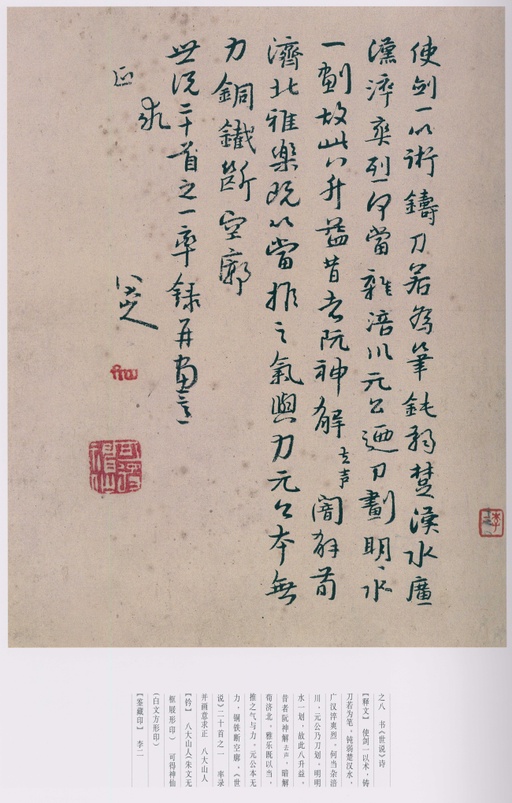 使劍一以術鑄刀若為筆鈍弱楚漢水廣
漢淬爽烈何當雜涪川元公迺刀劃明〻水
一劃故此八升益昔者阮神解去声闇解荀
濟北雅樂既以當推之氣與力元公本無
力銅鐵斷空廓
世說二十首之一率錄并畫意
求
正
八大山人
可得神仙
李二
之八 书《世说》诗
【释文】 使剑一以术，铸
刀若为笔，钝弱楚汉水，
广汉淬爽烈，何当杂涪
川，元公乃刀划，明明
水一划，故此八升益，
昔者阮神解去声，暗解
荀济北，雅乐既以当，
推之气与力，元公本无
力，铜铁断空廓，《世
说》二十首之一 率录
并画意求正 八大山人
【钤】 八大山人（朱文无
框屐形印） 可得神仙
（白文方形印）
【鉴藏印】 李二